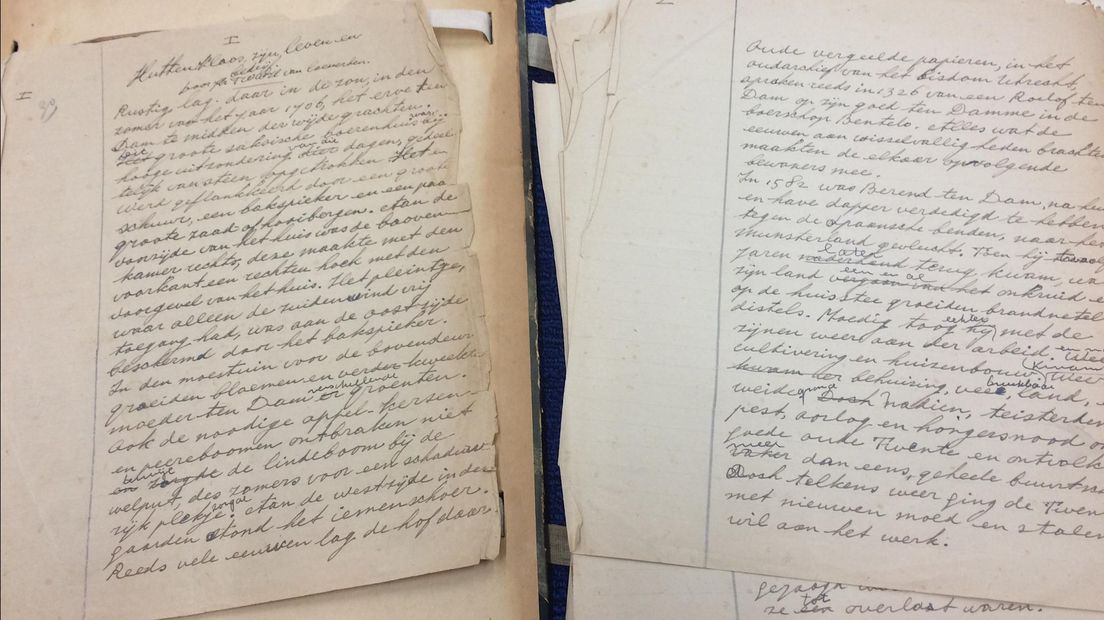 I
I
39
Huttenkloos, zijn leven en
bedrijf
van Coeverden.
Rustig lag daar in de zon, in den
zomer van het jaar 1706, het erve ten
Dam te midden der wijde grachten.
Het groote saksische boerenhuis was bij
hooge uitzondering van die dagen, geheel
telijk van steen opgetrokken. Het en
werd geflankeerd door een groote
schuur, een bakspieker en een paar
groote zaad of hooibergen. Aan de
voorzijde van het huis was de booven
kamer rechts, deze maakte met den
voorkant een rechten hoek met den
voorgevel van het huis. Het pleintje,
waar alleen de zuidenwind vrij
toegang had, was aan de oostzijde
beschermd door het bakspieker.
In den moestuin voor de bovendeur
groeiden bloemen en verder kweekte
moeder ten Dam er verschillende groenten.
Ook de noodige appel- kersen-
en peereboomen ontbraken niet
terwijl de lindeboom bij de
welput, des zomers voor een schaduw
rijk plekje zorgde. Aan de westzijde in den
gaarden stond het iemenschoer.
Reeds vele eeuwen lag de hof daar.
Oude vergeelde papieren, in het
oudarchief van het bisdom Utrecht,
spraken reeds in 1326 van een Roelof ten
Dam op zijn goed ten Damme in de
boerschop Bentelo. Alles wat de
eeuwen aan wisselvalligheden brachten
maakten de elkaar opvolgende
bewoners mee.
In 1582 was Berend ten Dam, na huis
en have dapper verdedigd te hebben
tegen de Spaansche benden, naar het
Munsterland gevlucht. Toen hij
jaren later terug kwam, wa
zijn land een en al onkruid e
op de huisstee groeiden brandnetel
distels. Moedig toog hij echter met de
zijnen weer aan den arbeid.
cultiveering en huizenbouw
kwam er behuizing, vee, bruikbaar land, e
weidegrond Doch nadien, teisterden
pest, oorlog en hongersnood
goede oude Twente en ontvolk
meer dan eens, geheele buurtsch
Doch telkens weer ging de Twen
met nieuwen moed en stalen
wil aan het werk.
gezogen
ze tot een overlast waren.